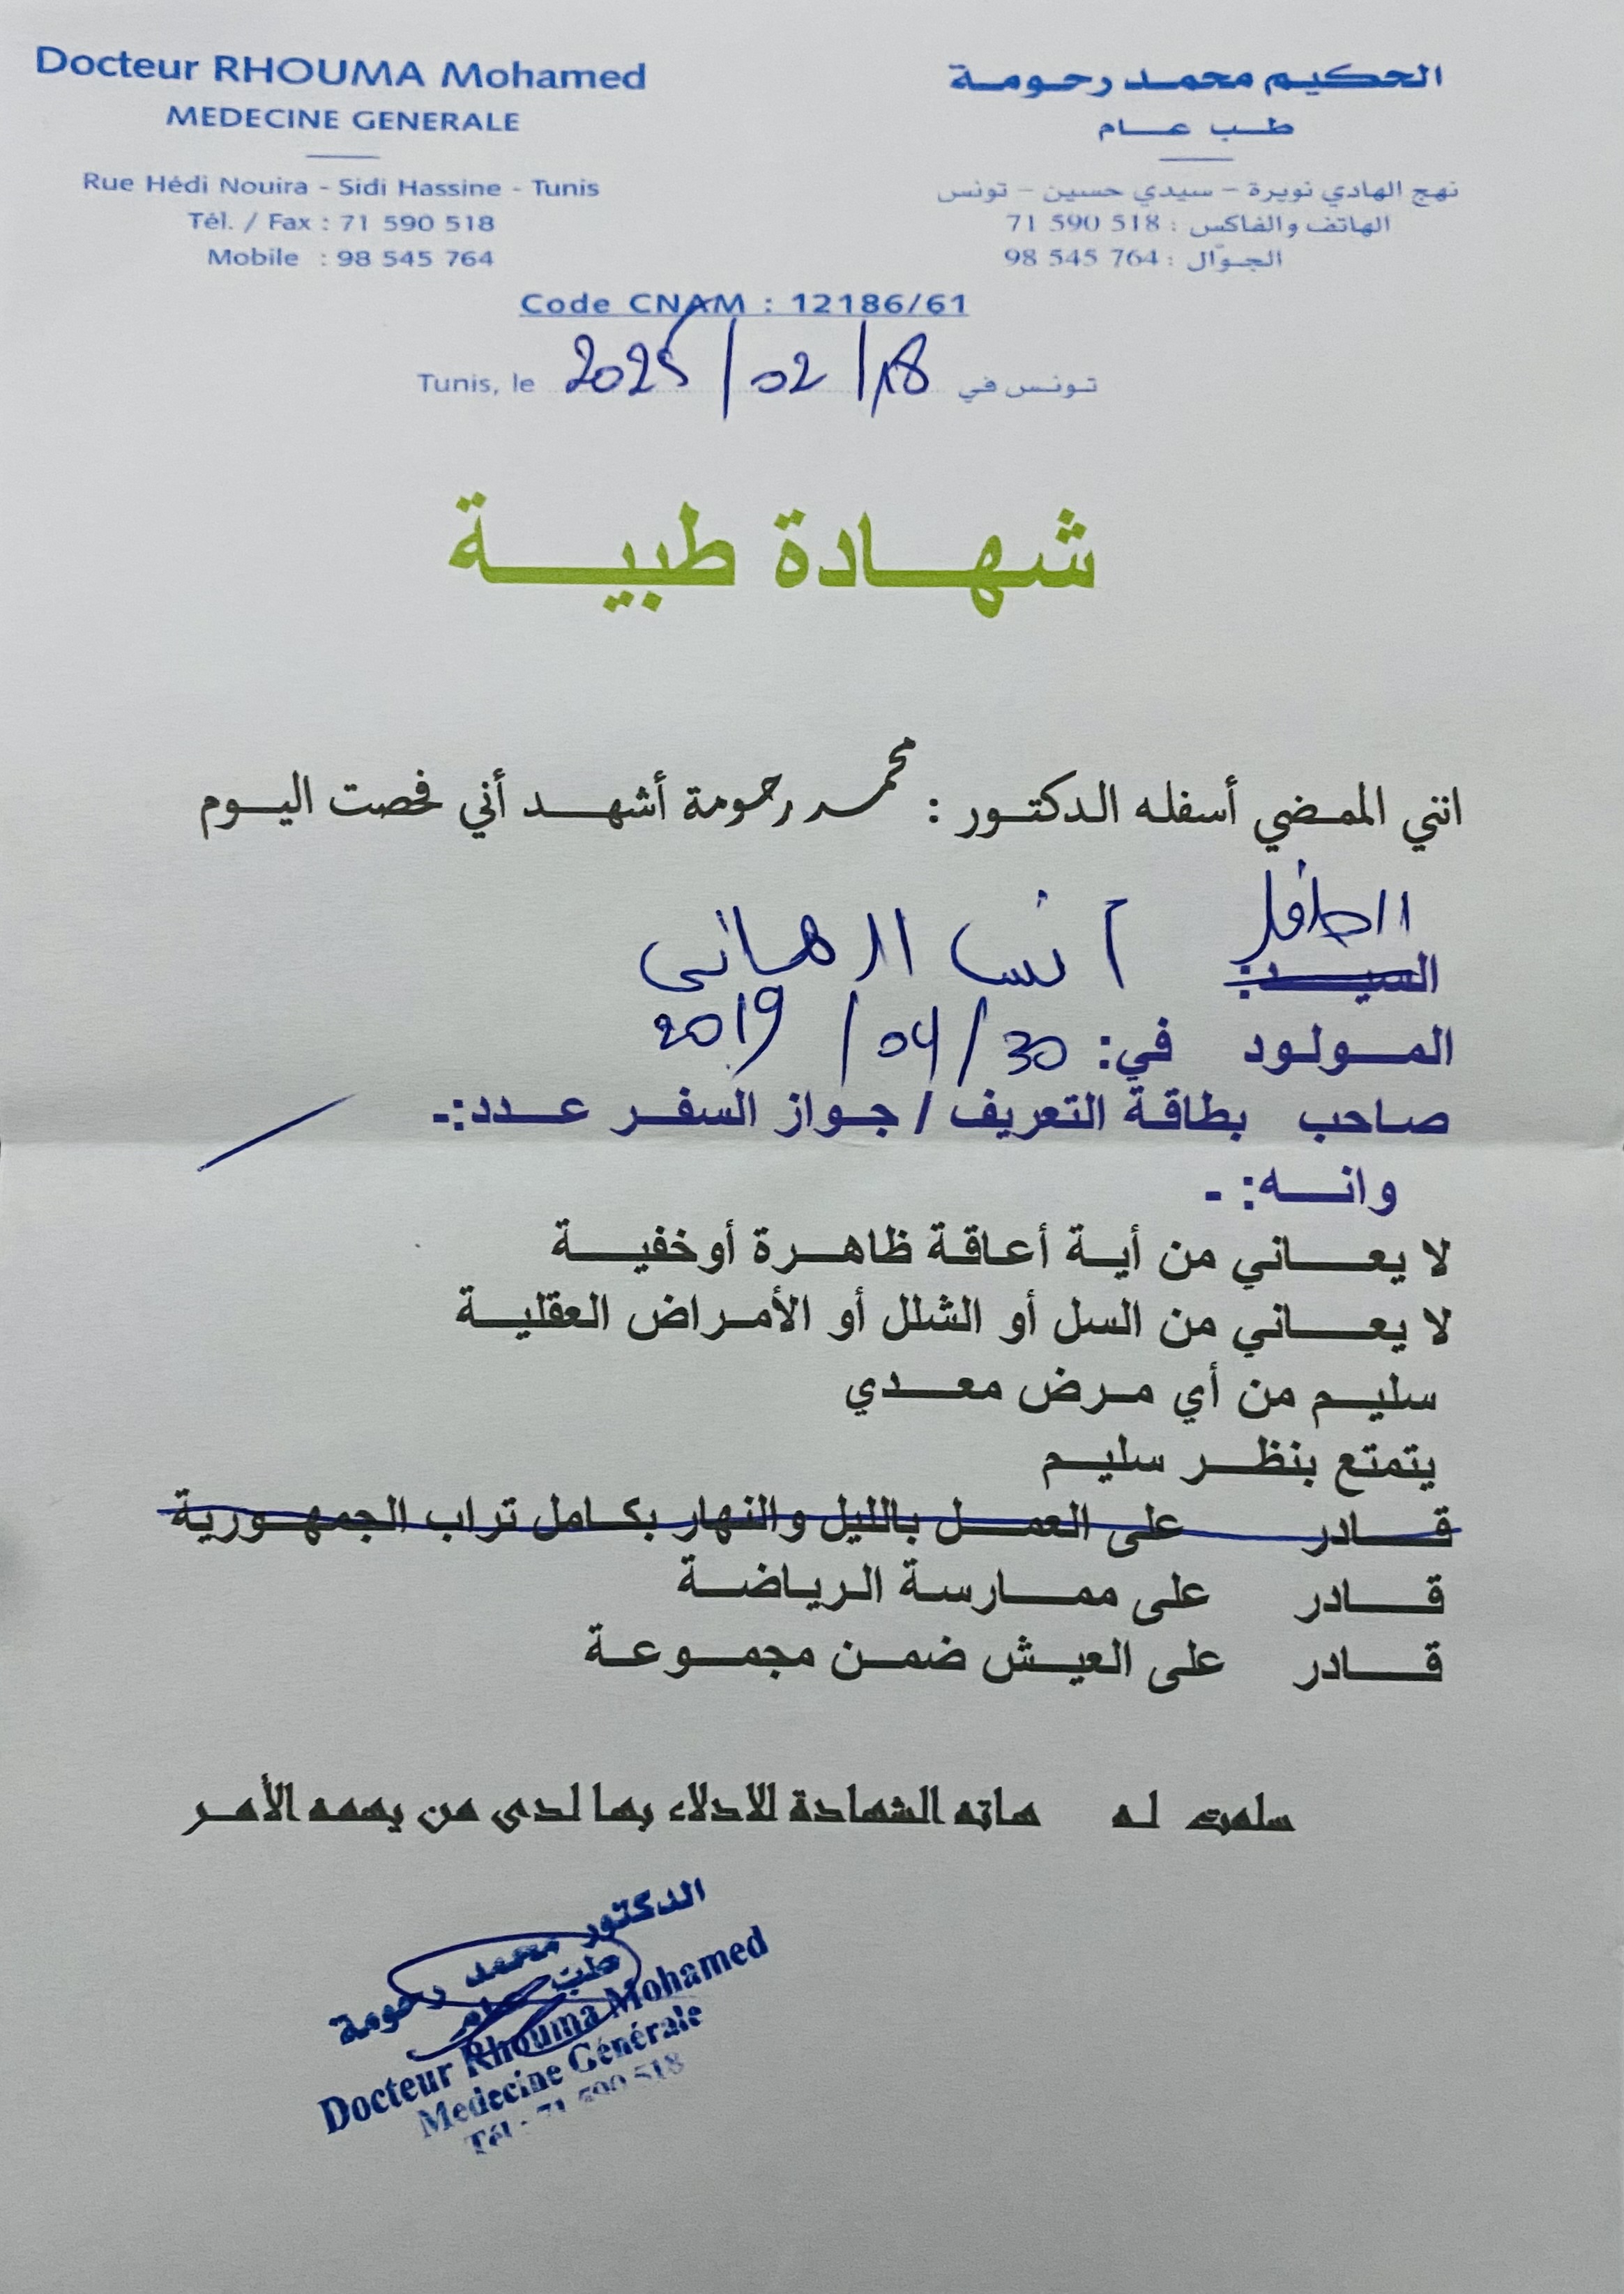 Docteur RHOUMA Mohamed
MEDECINE GENERALE
Rue Hédi Nouira - Sidi Hassine - Tunis
Tél. / Fax : 71 590 518
Mobile : 98 545 764
الحكيم محمد رحومة
طب عام
نهج الهادي نويرة - سيدي حسين - تونس
الهاتف والفاكس : 71 590 518
الجوّال : 98 545 764
Code CNAM : 12186/61
Tunis, le 2025/02/18 تونس في
شهادة طبية
انني الممضي أسفله الدكتور : محمد رحومة أشهد أني فحصت اليوم
الطفل
السيد: آنس الهاني
المولود في: 30/04/2019
صاحب بطاقة التعريف / جواز السفر عدد:-
وانه: -
لا يعاني من أية أعاقة ظاهرة أوخفية
لا يعاني من السل أو الشلل أو الأمراض العقلية
سليم من أي مرض معدي
يتمتع بنظر سليم
قادر على العمل بالليل والنهار بكامل تراب الجمهورية
قادر على ممارسة الرياضة
قادر على العيش ضمن مجموعة
سلمت له هاته الشهادة للادلاء بها لدى من يهمه الأمر
الدكتور محمد رحومة
طب عام
Docteur Rhouma Mohamed
Medecine Générale
Tél : 71 590 518